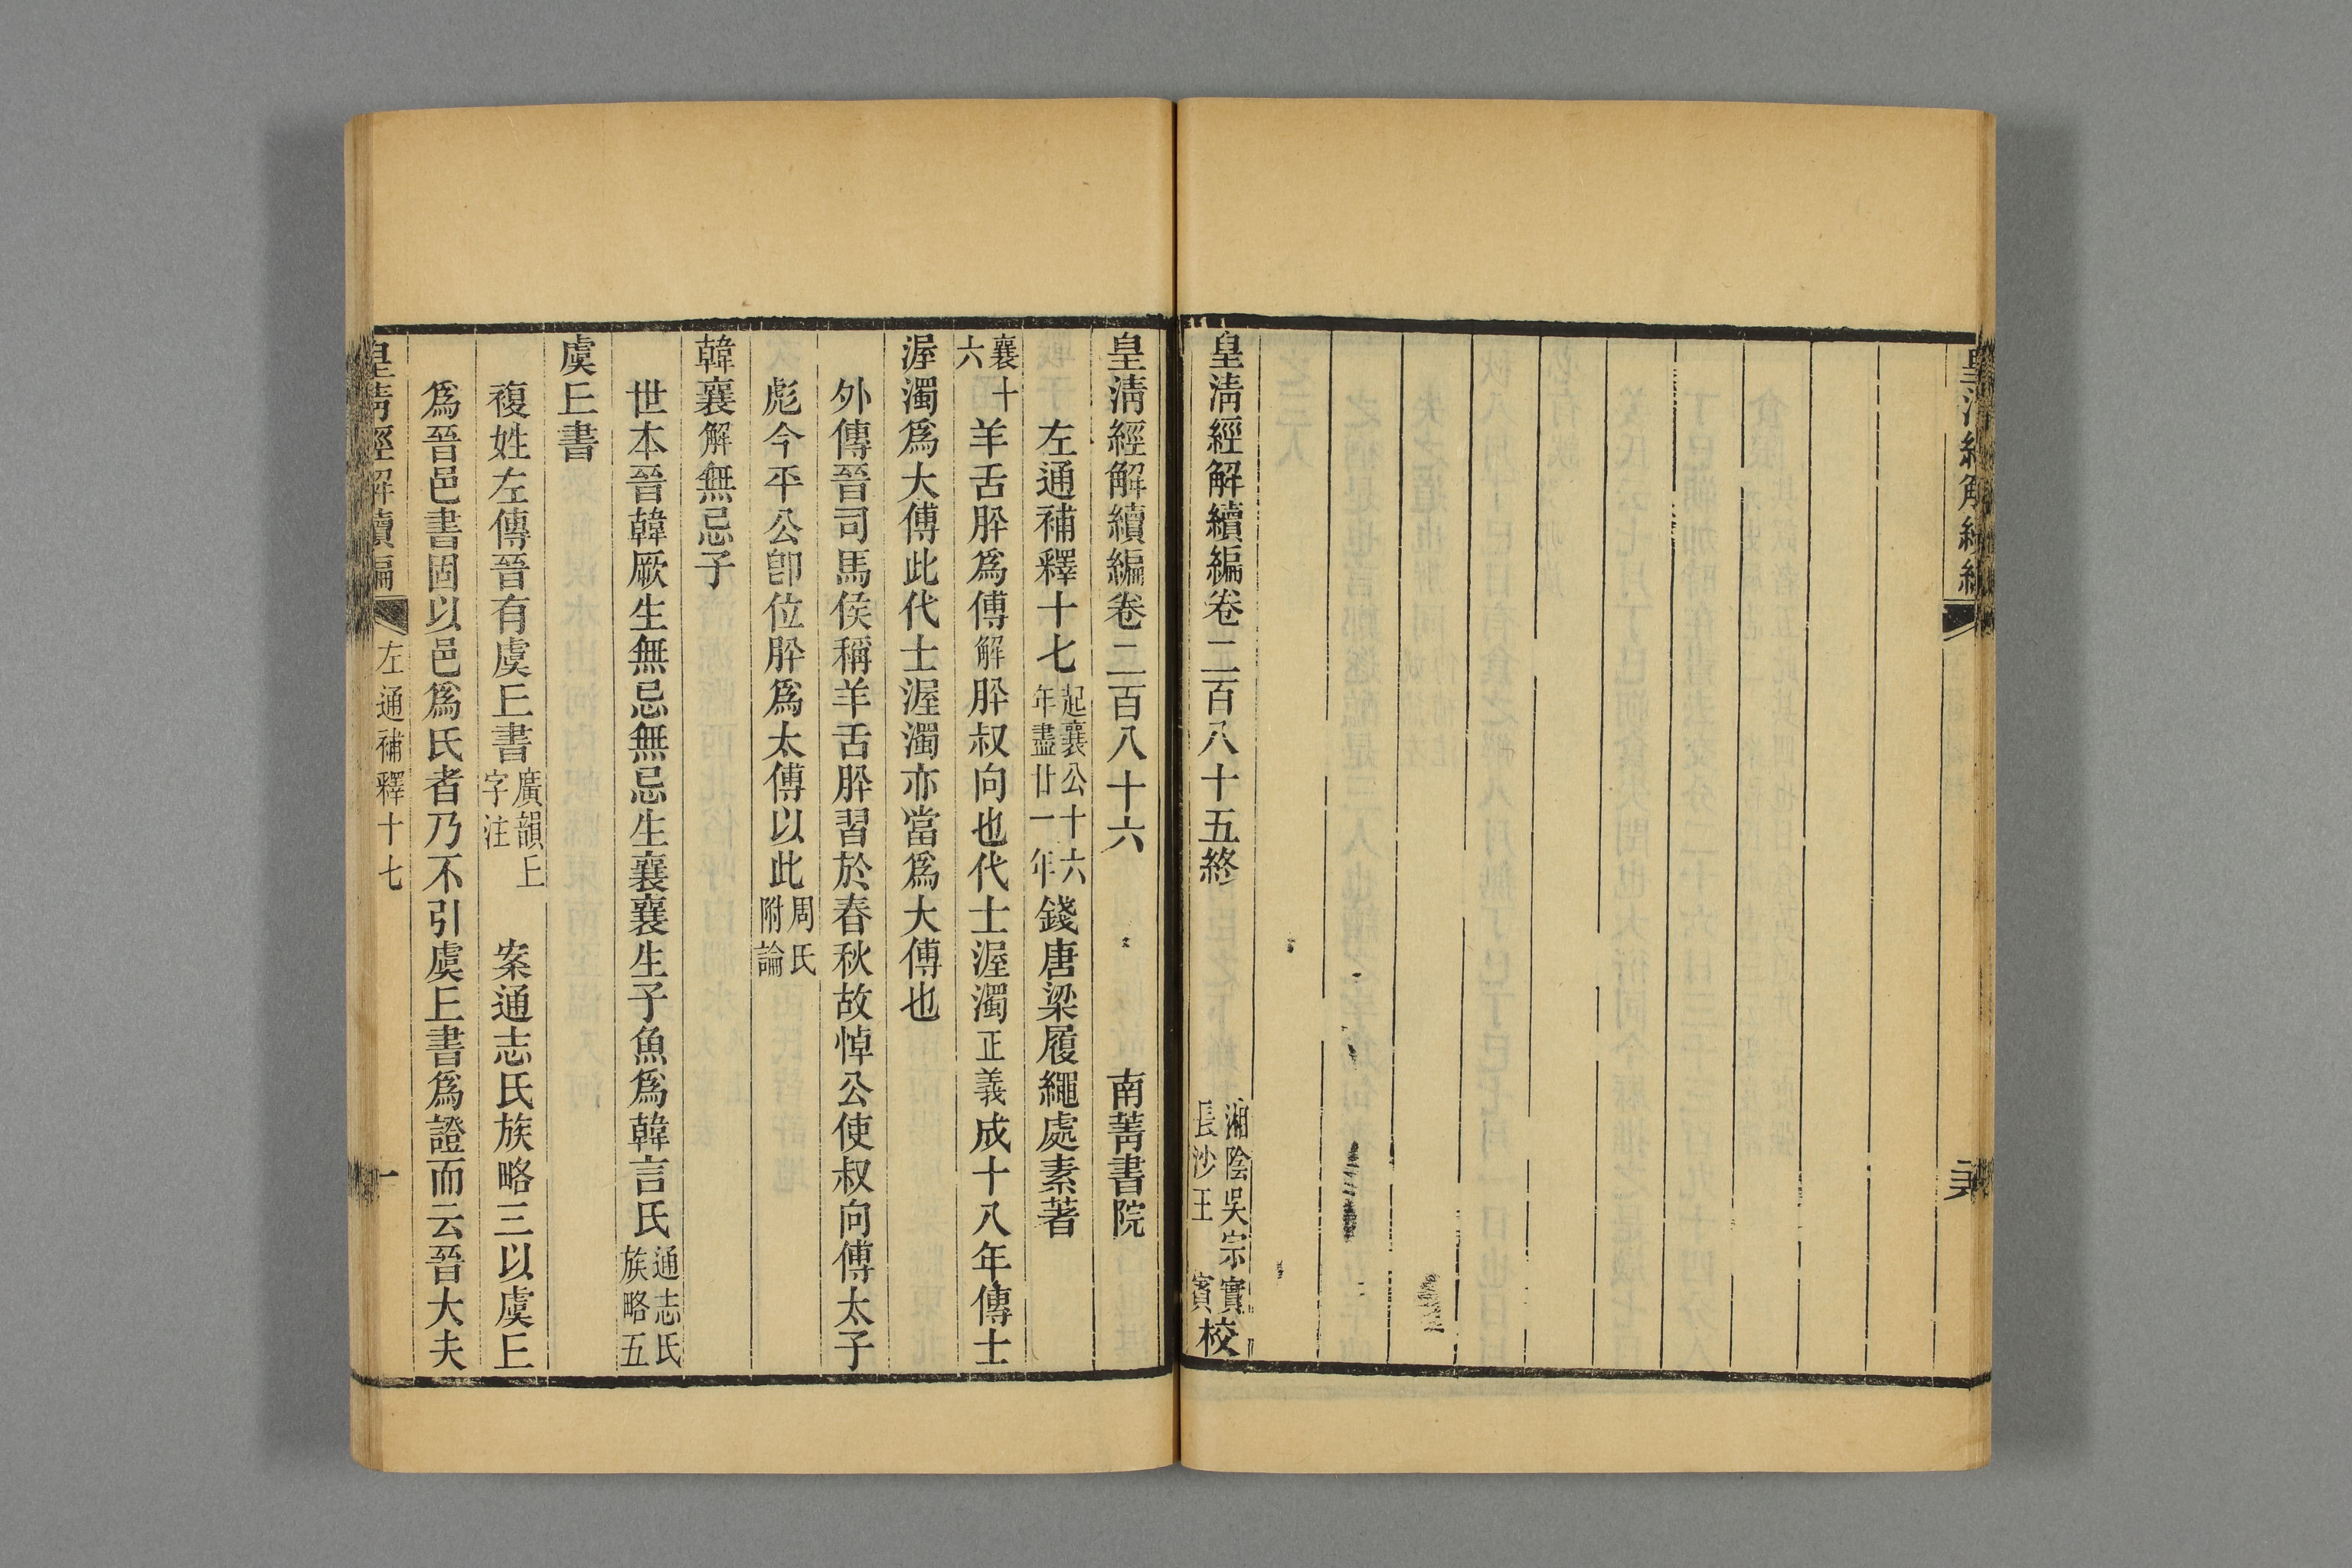 皇清經解續編卷二百八十五終
湘陰吳宗實
長沙王 賓校
皇清經解續編卷二百八十六 南菁書院
左通補釋十七 起襄公十六年盡廿一年 錢唐梁履繩處素著
襄十六 羊舌肸爲傅解肸叔向也代士渥濁正義成十八年傳士
渥濁爲大傅此代士渥濁亦當爲大傅也
外傳晉司馬侯稱羊舌肸習於春秋故悼公使叔向傅太子
彪今平公卽位肸爲太傅以此 周氏附論
韓襄解無忌子
世本晉韓厥生無忌無忌生襄襄生子魚爲韓言氏 通志氏族略五
虞丘書
複姓左傳晉有虞丘書 廣韻丘字注 案通志氏族略三以虞丘
爲晉邑書固以邑爲氏者乃不引虞丘書爲證而云晉大夫
皇清經解續編 左通補釋十七 一